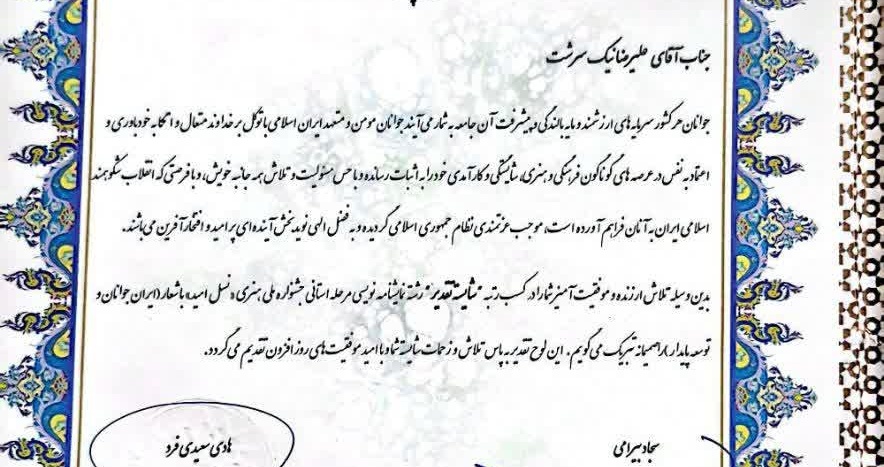 جناب آقای علیرضا نیک سرشت
جوانان هر کشور سرمایه های ارزشمند و مایه بالندگی و پیشرفت آن جامعه به شمار می آیند جوانان مومن و متعهد ایران اسلامی با توکل بر خداوند متعال و اتکا به خودباوری و
اعتماد به نفس در عرصه های گوناگون فرهنگی و هنری، شایستگی و کارآمدی خود را به اثبات رسانده و با حس مسئولیت و تلاش همه جانبه خویش، و با فرصتی که انقلاب شکوهمند
اسلامی ایران به آنان فراهم آورده است، موجب عزتمندی نظام جمهوری اسلامی گردیده و به فضل الهی نوید بخش آینده ای پر امید و افتخارآفرین می باشند.
بدین وسیله تلاش ارزنده و موفقیت آمیز شما را در کسب رتبه "شایسته تقدیر" رشته نمایشنامه نویسی مرحله استانی جشنواره ملی هنری «نسل امید» با شعار (ایران جوانان و
توسعه پایدار) را صمیمانه تبریک می گویم. این لوح تقدیر به پاس تلاش و زحمات شایسته شما و با امید موفقیت های روز افزون تقدیم می گردد.
سجاد بیرامی
هادی سعیدی فرد